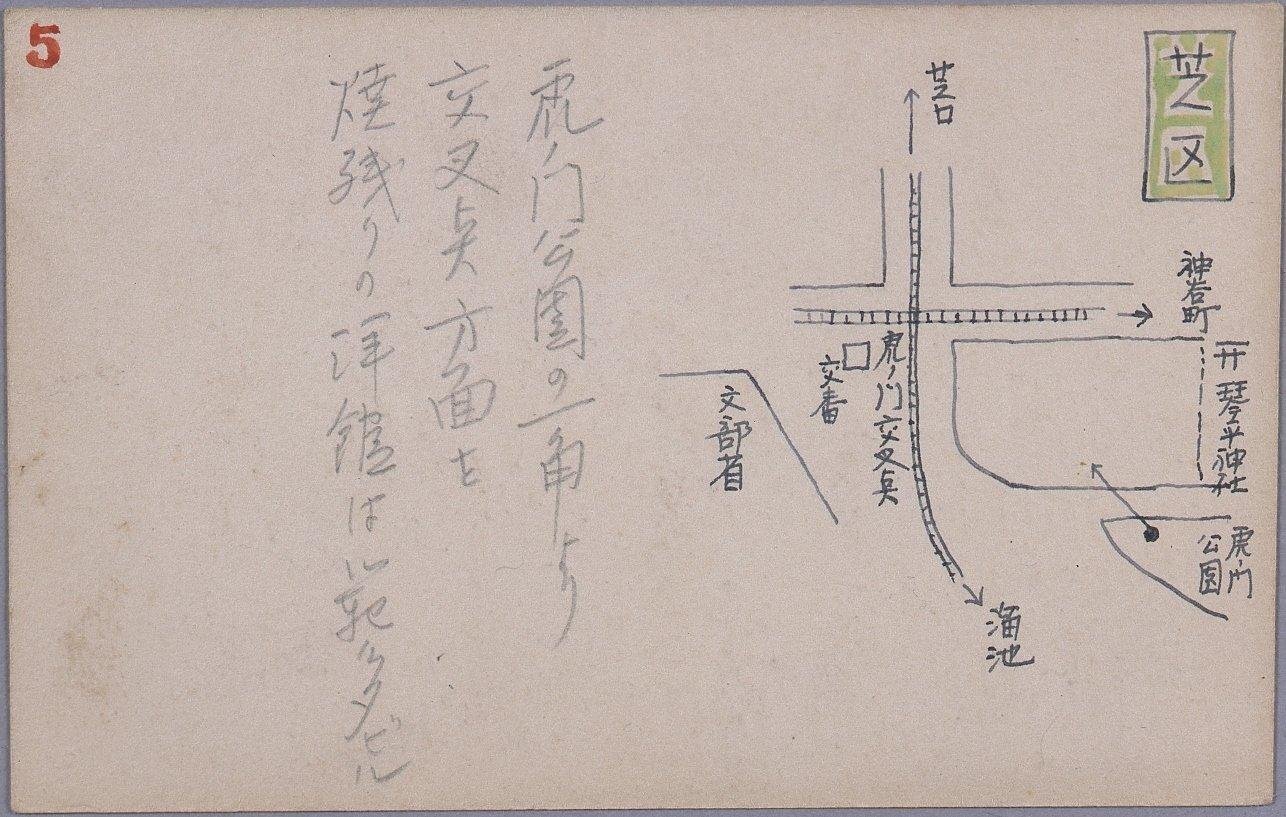 5
芝区
芝口
神谷町
琴平神社
虎ノ門
公園
虎ノ門交叉点
交番
文部省
溜池
虎ノ門公園の一角より
交叉点方面を
焼残りの洋館は